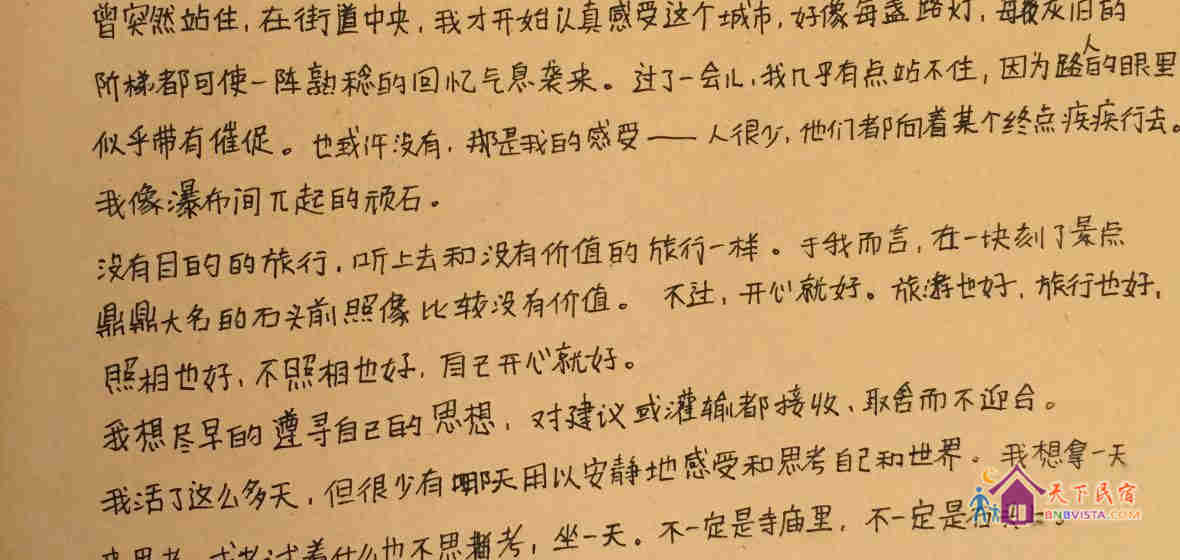 曾突然站住，在街道中央，我才开始认真感受这个城市，好像每盏路灯，每段灰旧的
阶梯都可使一阵熟稔的回忆气息袭来。过了一会儿，我几乎有点站不住，因为路人的眼里
似乎带有催促。也或许没有，那是我的感受——人很少，他们都向着某个终点疾疾行去。
我像瀑布间兀起的顽石。
没有目的的旅行，听上去和没有价值的旅行一样。于我而言，在一块刻了景点
鼎鼎大名的石头前照像比较没有价值。不过，开心就好。旅游也好，旅行也好，
照相也好，不照相也好，自己开心就好。
我想尽早的遵寻自己的思想，对建议或灌输都接收、取舍而不迎合。
我活了这么多天，但很少有哪天用以安静地感受和思考自己和世界。我想拿一天
思考，或者试着什么也不思考，坐一天。不一定是寺庙里，不一定是
天下民宿
BNBVISTA.COM